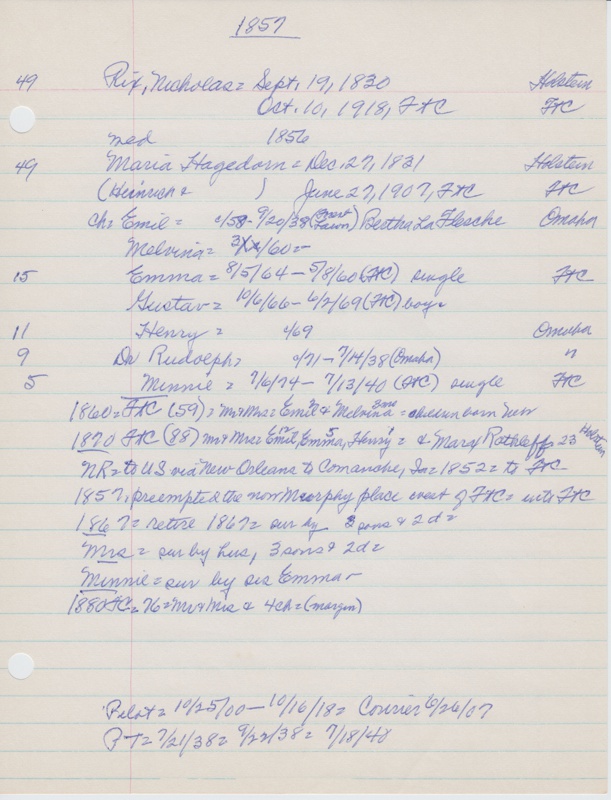 1857
49 Rix, Nicholas = Sept. 19, 1830 Holstein
Oct. 10, 1918, FtC FtC
med 1856
49 Maria Hagedorn = Dec. 27, 1831 Holstein
(Heinrich & ) June 27, 1907, FtC FtC
ch = Emil = c/58 - 9/20/38 Bertha LaFlesche Omaha
Melvina = /60 =
15 Emma = 8/5/64 - 5/8/60 (FtC) single FtC
Gustav = 10/6/66 - 6/2/69 (FtC) boy =
11 Henry = c/69 Omaha
9 Dr Rudolph = c/71 - 7/14/38 (Omaha) "
5 Minnie = 7/6/74 - 7/13/40 (FtC) single FtC
1860 = FtC (59) = Mr & Mrs = Emil & Melvina = born
1870 FtC (88) Mr & Mrs = Emil, Emma, Henry = & Mary Rathleff 23 Holstein
NR = to US via New Orleans to Comanche, Ia = 1852 = to FtC
1857, preempted the now Murphy place east of FtC = into FtC
1867 = retire 1867 = sur by 3 sons & 2 d =
Mrs = sur by hus, 3 sons & 2 d =
Minnie = sur by sis Emma -
1880 FtC = 76 = Mr & Mrs & 4 ch = (margin)
Pilot = 10/25/00 - 10/16/18 = Courier 6/26/07
PT = 7/21/38 = 9/22/38 = 7/18/40